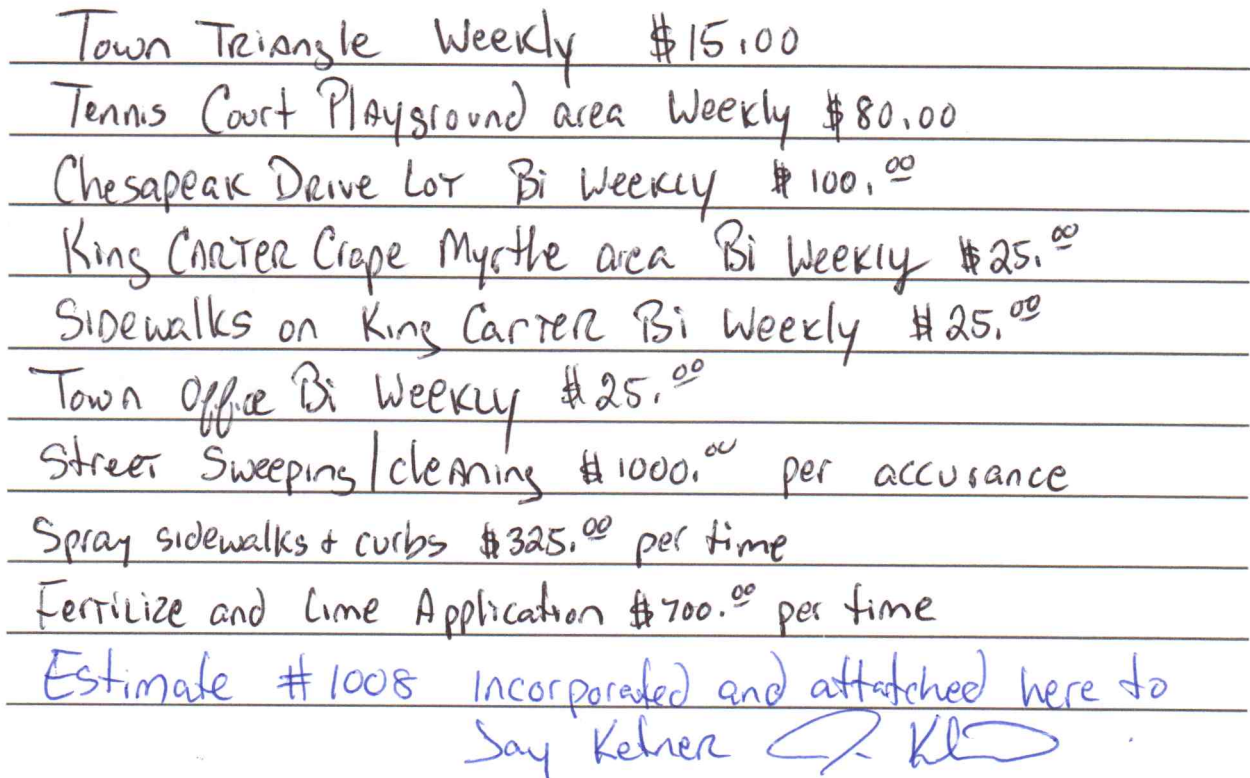 Town Triangle Weekly $15.00
Tennis Court Playground area Weekly $80.00
Chesapeak Drive Lot Bi Weekly $100.00
King Carter Crape Myrthe area Bi Weekly $25.00
Sidewalks on King Carter Bi Weekly $25.00
Town Office Bi Weekly $25.00
Street Sweeping/cleaning $1000.00 per accurance
Spray sidewalks & curbs $325.00 per time
Fertilize and Lime Application $700.00 per time
Estimate #1008 incorporated and attatched here to
Jay Ketner